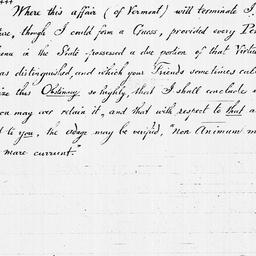 Where this affair (of Vermont) will terminate I
ture, though I could form a Guess, provided every Per
in the State possessed a due portion of that Virtu
as distinguished, and which your Friends sometimes call
this Obstinacy so highly, that I shall conclude
you may ever retain it, and that with respect to that
to you, the adage may be verified, "non Animum m
mare current."